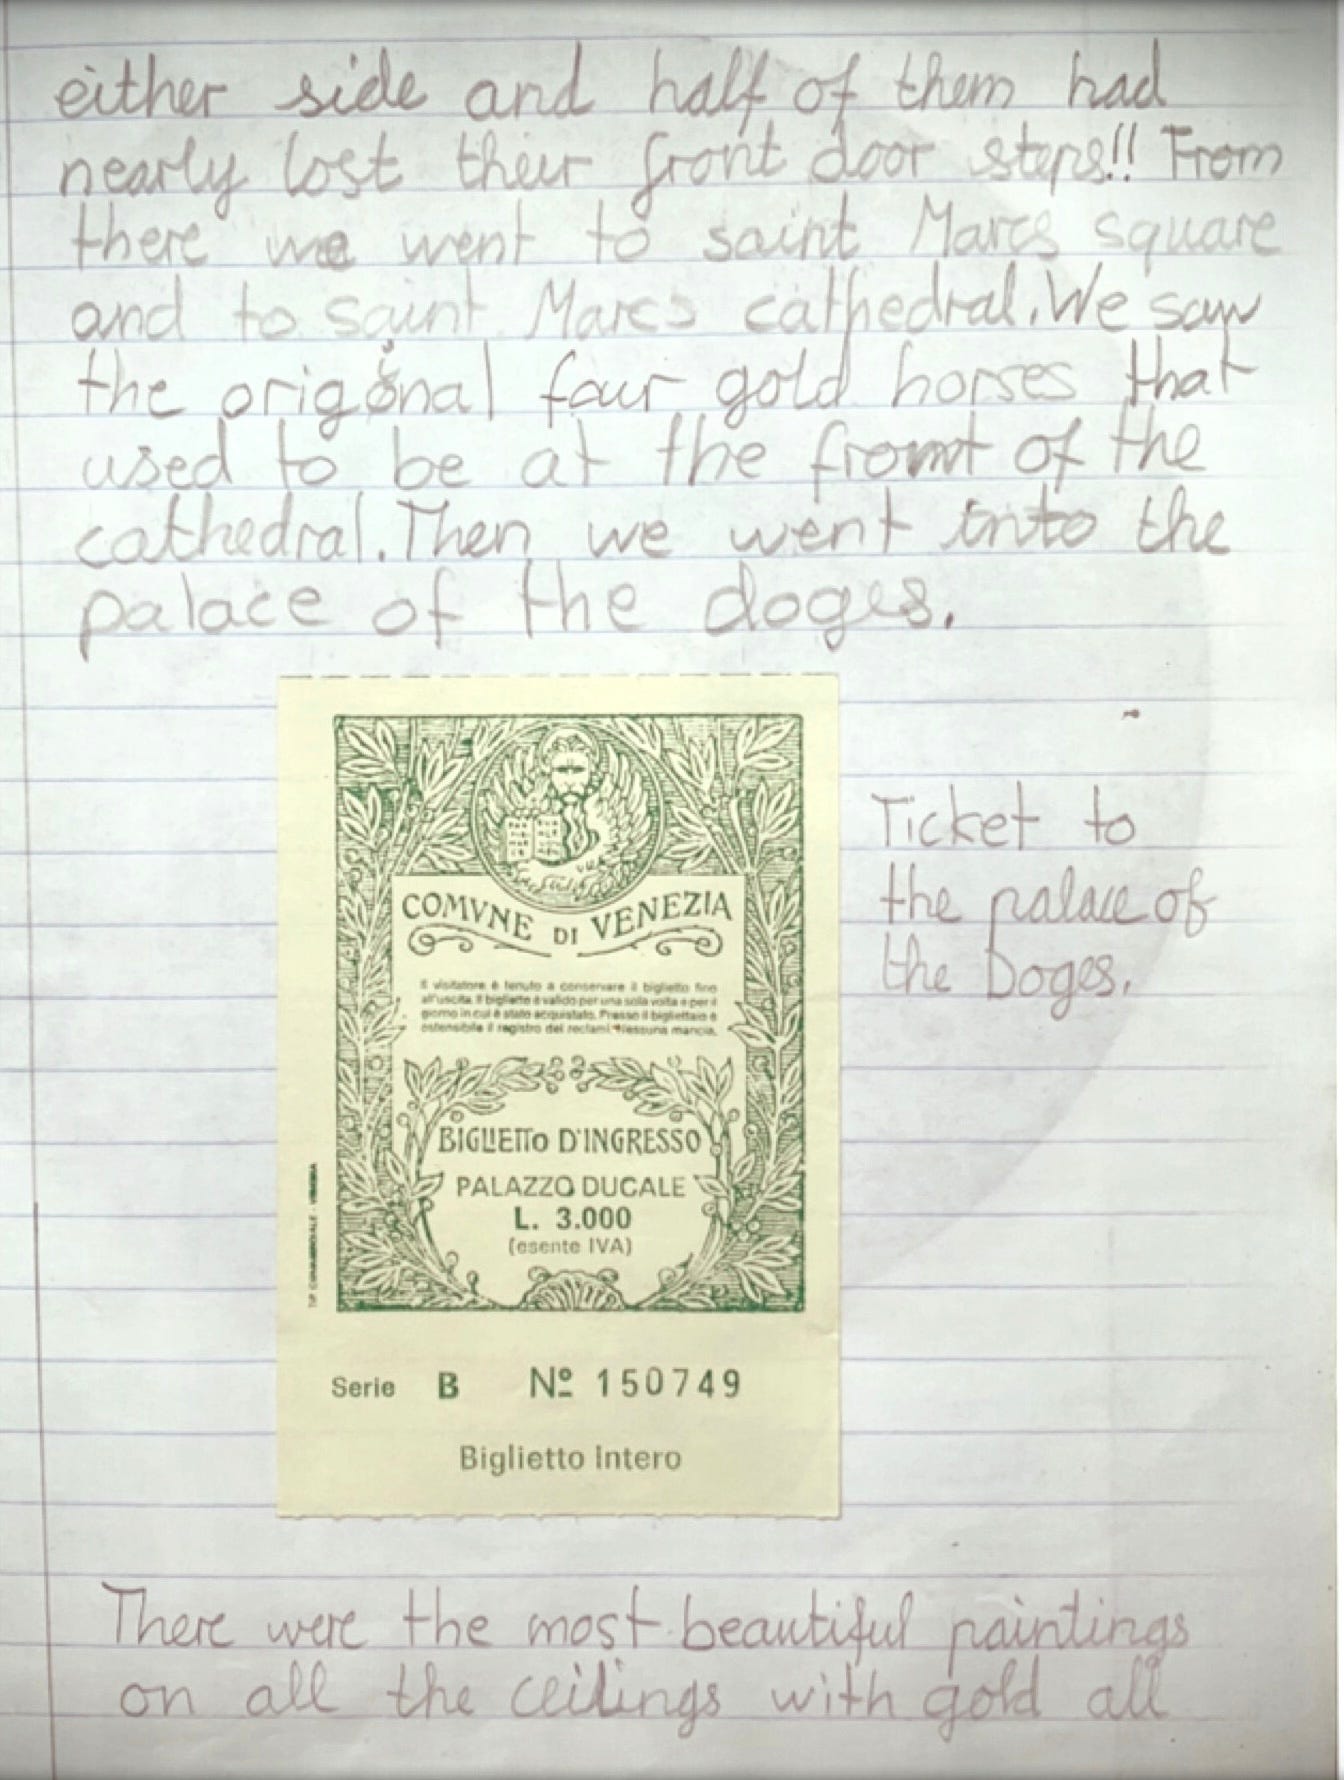 either side and half of them had
nearly lost their front door steps!! From
there we went to saint Marcs square
and to saint Marcs cathedral. We saw
the original four gold horses that
used to be at the front of the
cathedral. Then we went into the
palace of the doges.
COMVNE DI VENEZIA
Il visitatore è tenuto a conservare il biglietto fino
all'uscita. Il biglietto è valido per una sola volta e per il
giorno in cui è stato acquistato. Presso il bigliettaio è
ostensibile il registro dei reclami. Nessuna mancia.
BIGLIETTO D'INGRESSO
PALAZZO DUCALE
L. 3.000
(esente IVA)
Serie B Nº 150749
Biglietto Intero
Ticket to
the palace of
the Doges.
There were the most beautiful paintings
on all the ceilings with gold all